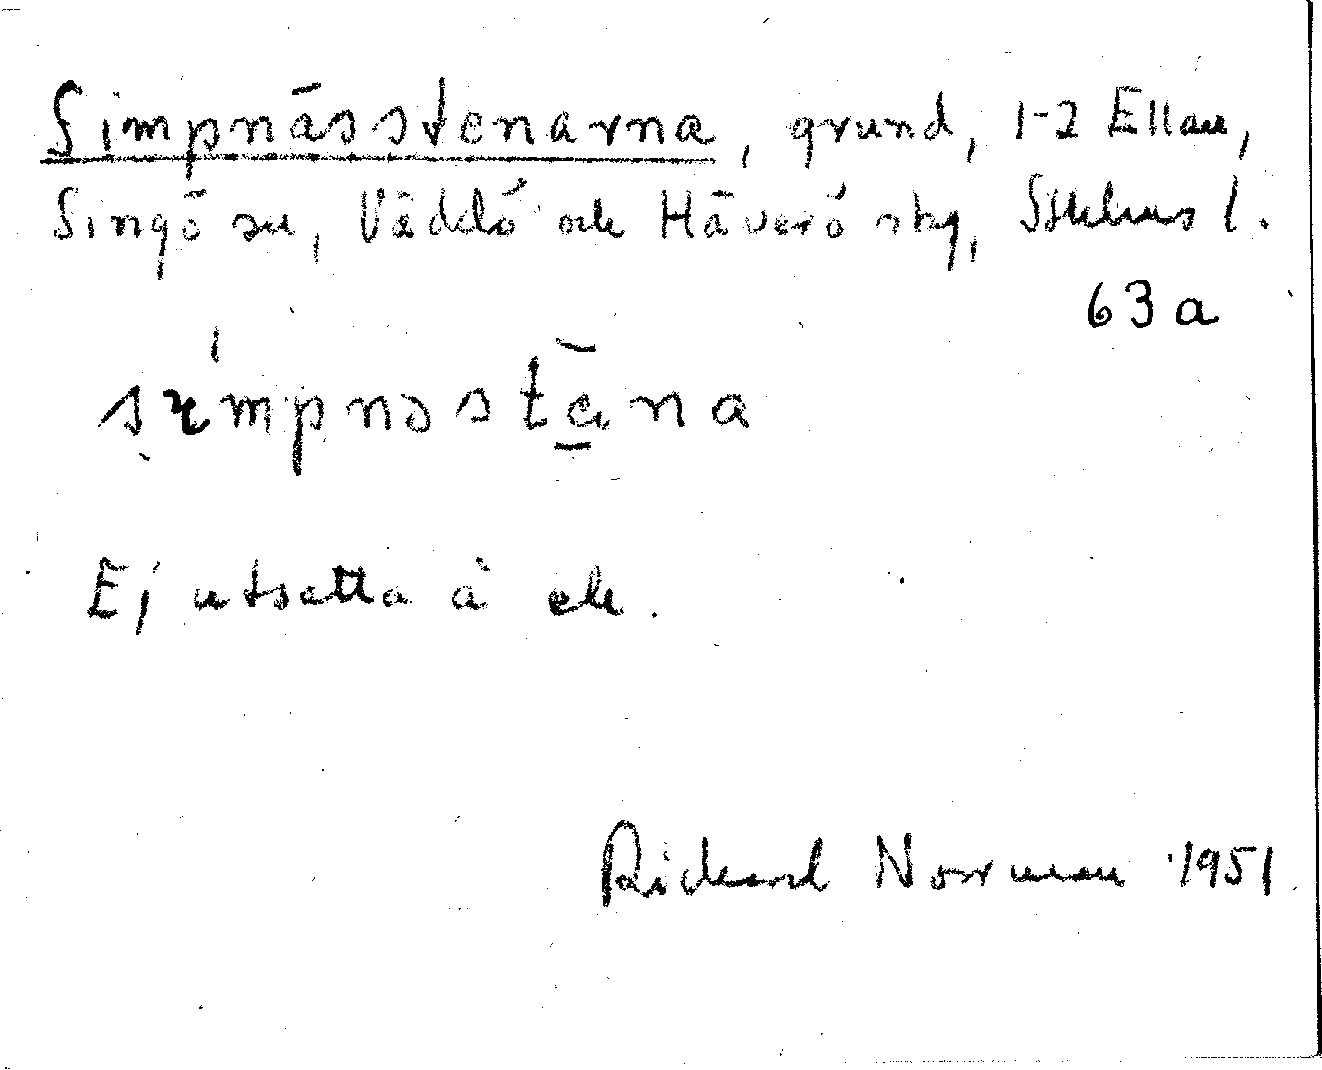 Simpnässtenarna, grund, 1-2 Ellan,
Singö sn, Väddö och Häverö skg, Sthlms l.
63 a
Ej utsatta å ek.
Rickard Norman 1951